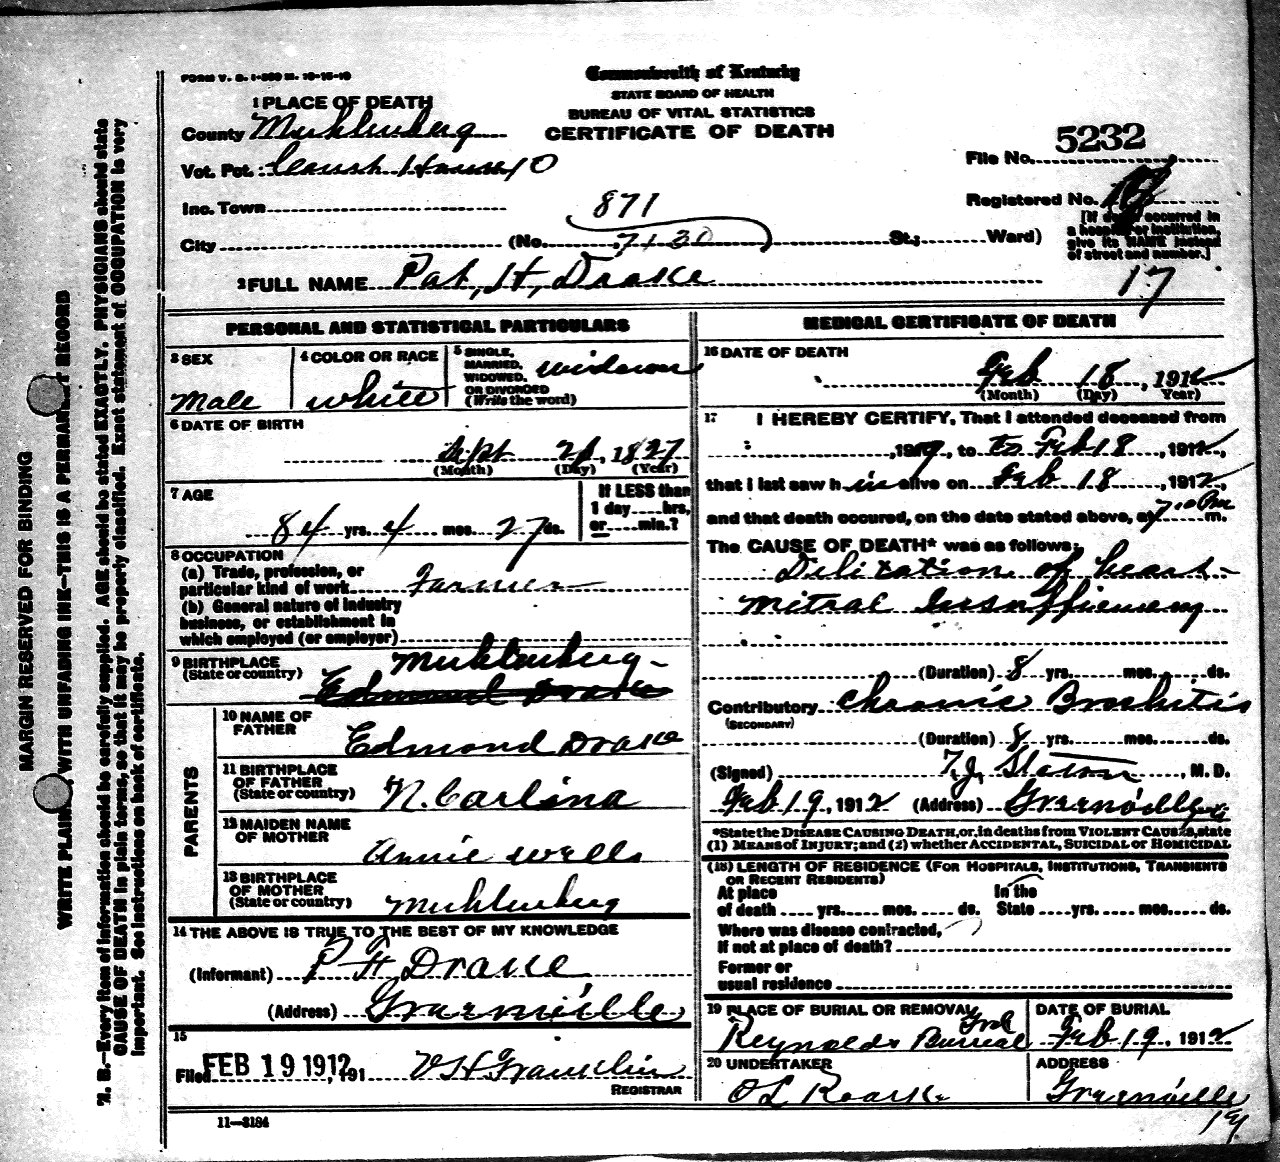 FORM V. S. 1-350 M. 10-15-10
Commonwealth of Kentucky
STATE BOARD OF HEALTH
BUREAU OF VITAL STATISTICS
CERTIFICATE OF DEATH
1 PLACE OF DEATH
County Muhlenberg
Vot. Pct. Court House 10
Inc. Town
City (No. St.; Ward)
871
7130
File No. 5232
Registered No.
[If death occurred in
a hospital or institution,
give its NAME instead
of street and number.]
17
2 FULL NAME Pat, H, Drake
PERSONAL AND STATISTICAL PARTICULARS
3 SEX
Male
4 COLOR OR RACE
White
5 SINGLE,
MARRIED,
WIDOWED,
OR DIVORCED
(Write the word)
widower
6 DATE OF BIRTH
Sept 21, 1827
(Month) (Day) (Year)
7 AGE
84 yrs. 4 mos. 27 ds.
If LESS than
1 day hrs.
or min.?
8 OCCUPATION
(a) Trade, profession, or
particular kind of work Farmer
(b) General nature of industry
business, or establishment in
which employed (or employer)
9 BIRTHPLACE
(State or country)
Muhlenberg
Edmund Drake
PARENTS
10 NAME OF
FATHER
Edmond Drake
11 BIRTHPLACE
OF FATHER
(State or country)
N. Carlina
12 MAIDEN NAME
OF MOTHER
Annie Wells
13 BIRTHPLACE
OF MOTHER
(State or country)
Muhlenberg
14 THE ABOVE IS TRUE TO THE BEST OF MY KNOWLEDGE
(Informant) Drake
(Address) Greenville
15
Filed FEB 19 1912, 191 Franklin
REGISTRAR
11—3184
MEDICAL CERTIFICATE OF DEATH
16 DATE OF DEATH
Feb 18, 1912
(Month) (Day) (Year)
17 I HEREBY CERTIFY, That I attended deceased from
, 191 , to to Feb 18, 1912,
that I last saw him alive on Feb 18, 1912,
and that death occured, on the date stated above, at 7 10 Pm m.
The CAUSE OF DEATH* was as follows:
Dilitation of heart
Mitral Insufficiency
(Duration) 8 yrs. mos. ds.
Contributory Chronic Bronkitis
(SECONDARY)
(Duration) 8 yrs. mos. ds.
(Signed) T. J. Slaton, M. D.
Feb 19, 1912 (Address) Greenville
*State the DISEASE CAUSING DEATH, or, in deaths from VIOLENT CAUSES, state
(1) MEANS OF INJURY; and (2) whether ACCIDENTAL, SUICIDAL or HOMICIDAL
(18) LENGTH OF RESIDENCE (FOR HOSPITALS, INSTITUTIONS, TRANSIENTS
OR RECENT RESIDENTS)
At place
of death yrs. mos. ds.
In the
State yrs. mos. ds.
Where was disease contracted,
If not at place of death?
Former or
usual residence
19 PLACE OF BURIAL OR REMOVAL
Reynolds Burreal
DATE OF BURIAL
Feb 19, 1912
20 UNDERTAKER
O L Roark
ADDRESS
Greenville
MARGIN RESERVED FOR BINDING
WRITE PLAINLY, WITH UNFADING INK—THIS IS A PERMANENT RECORD
N. B.—Every item of information should be carefully supplied. AGE should be stated EXACTLY. PHYSICIANS should state
CAUSE OF DEATH in plain terms, so that it may be properly classified. Exact statement of OCCUPATION is very
important. See instructions on back of certificate.